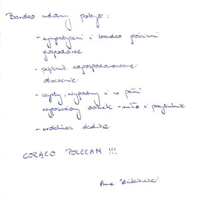 Bardzo udany pobyt:
- sympatyczni i bardzo pomocni
gospodarze
- pięknie zagospodarowane
otoczenie
- czysty, wygodny i w pełni
wyposażony domek - miło i przytulnie
- rodzinna okolica
GORĄCO POLECAM !!!
Anna